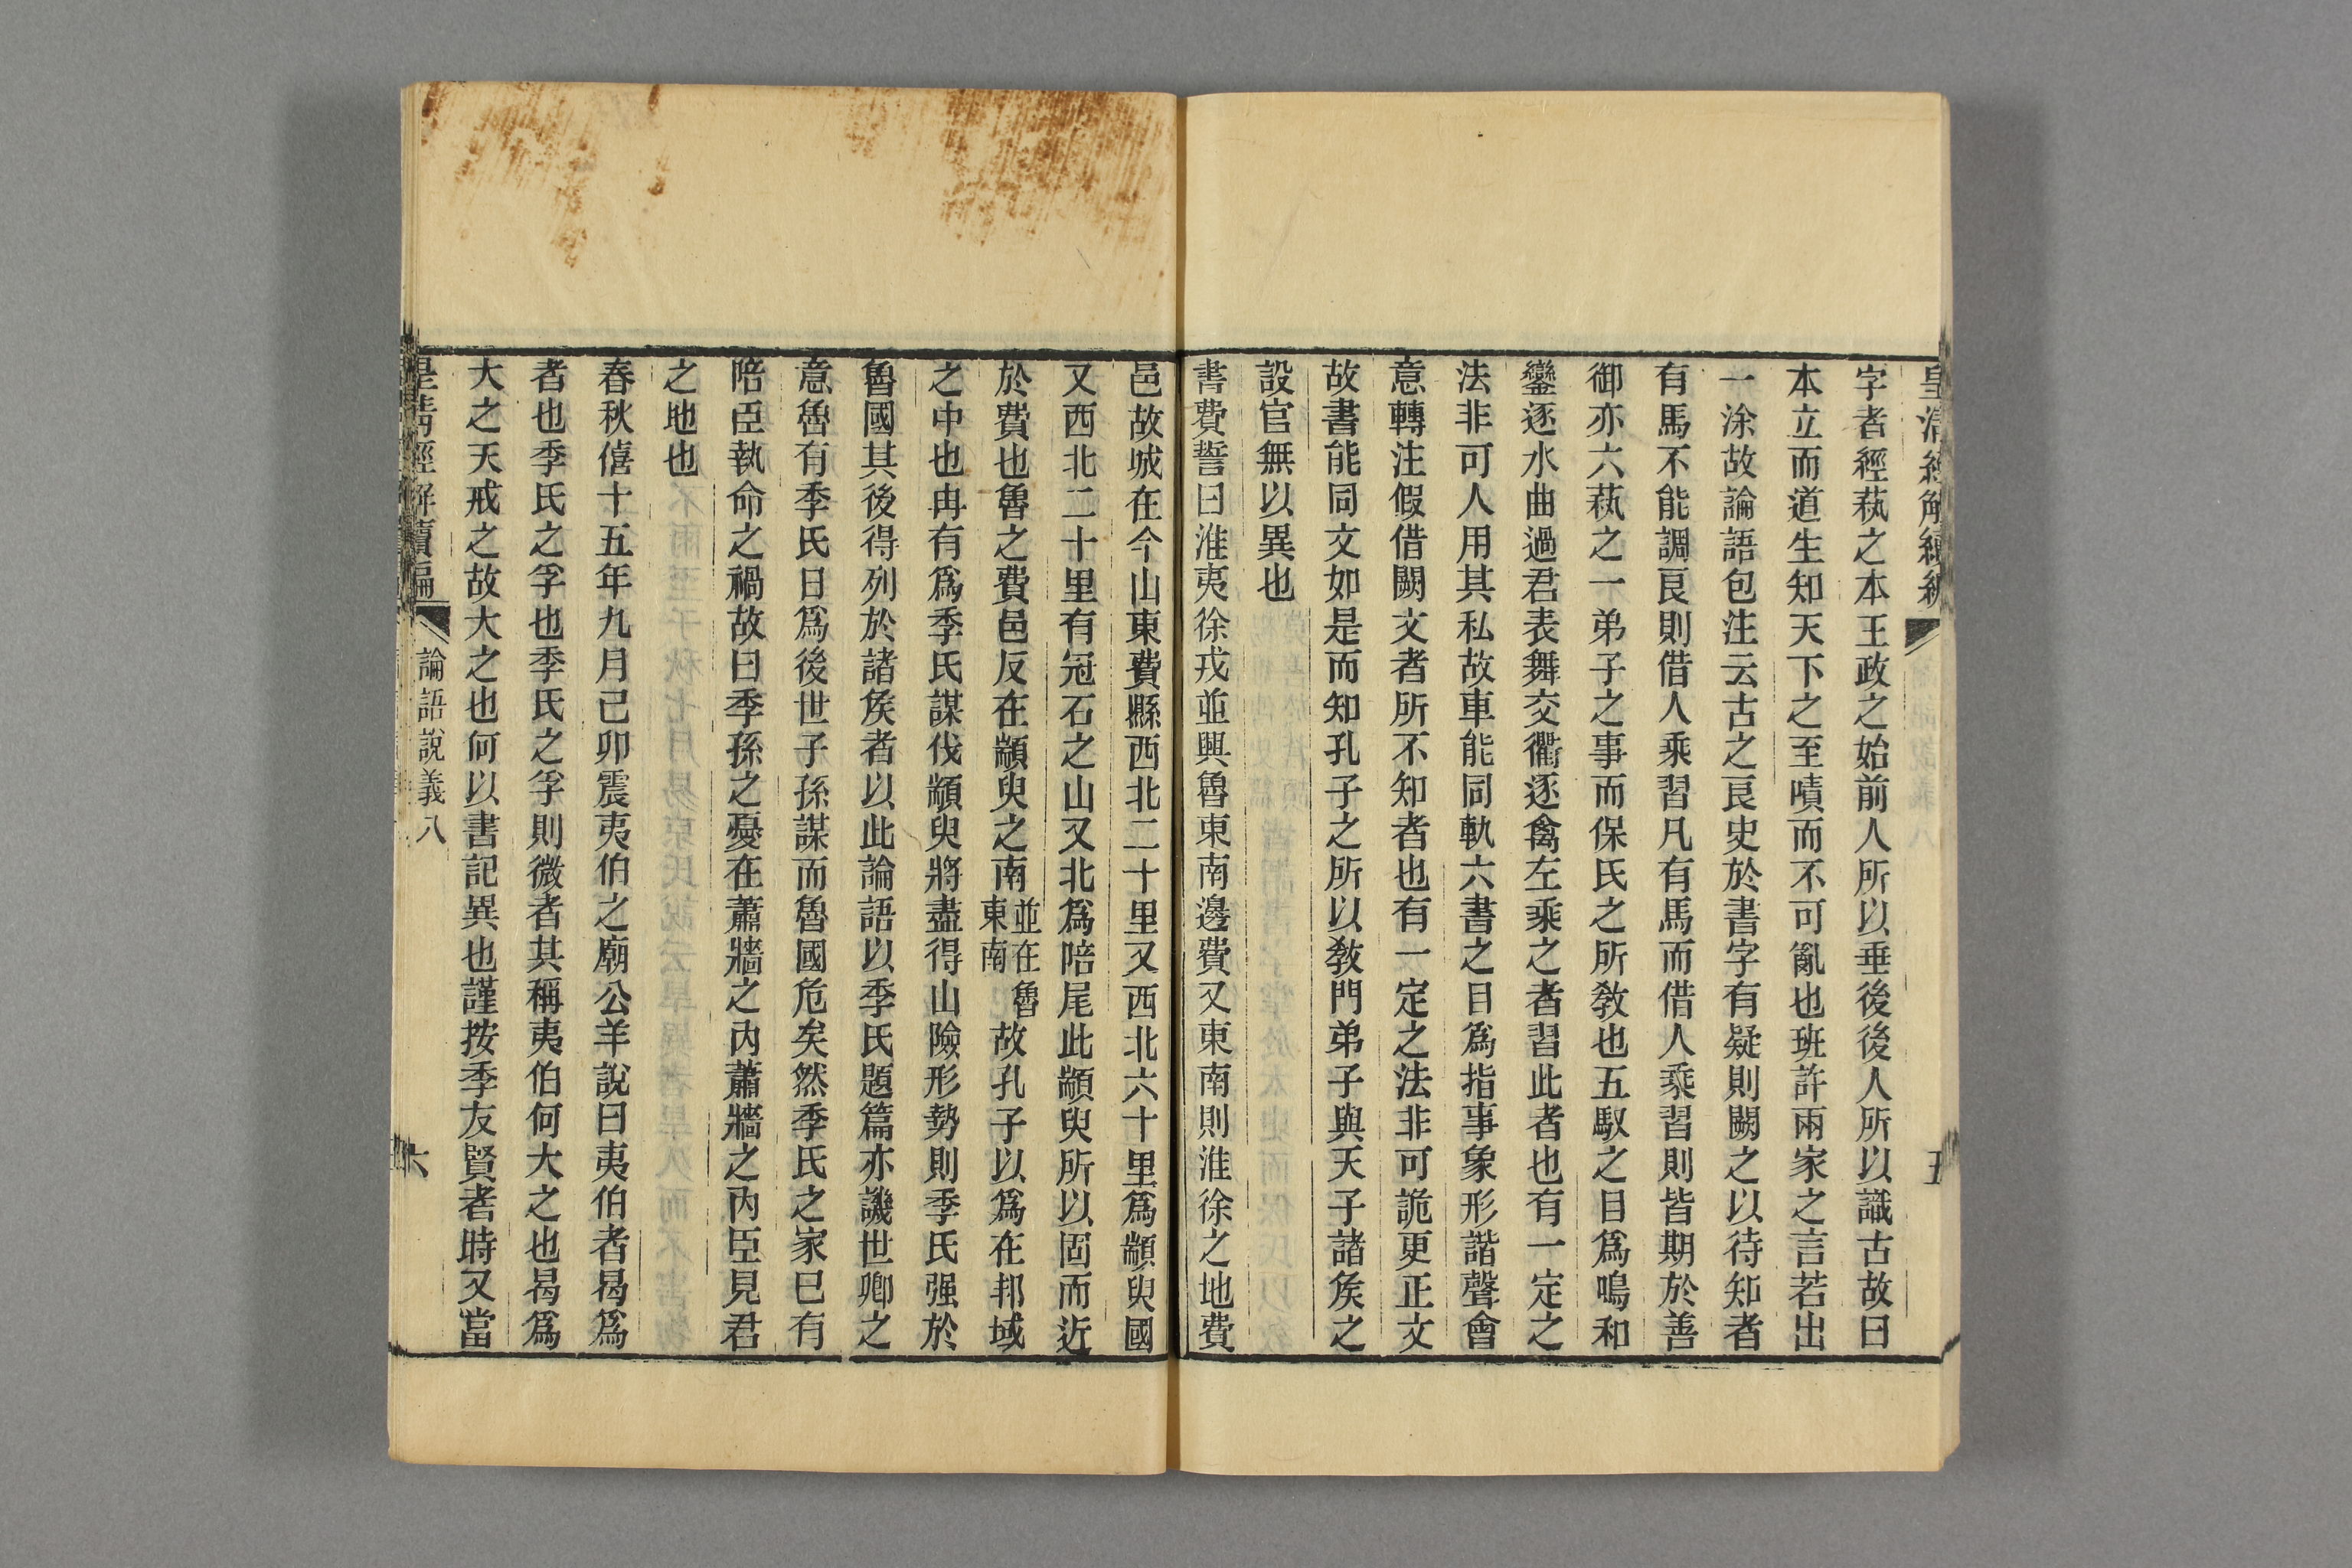 皇清經解續編
五
字者經蓺之本王政之始前人所以垂後後人所以識古故曰
本立而道生知天下之至嘖而不可亂也班許兩家之言若出
一涂故論語包注云古之良史於書字有疑則闕之以待知者
有馬不能調良則借人乘習凡有馬而借人乘習則皆期於善
御亦六蓺之一弟子之事而保氏之所敎也五馭之目爲鳴和
鑾逐水曲過君表舞交衢逐禽左乘之者習此者也有一定之
法非可人用其私故車能同軌六書之目爲指事象形諧聲會
意轉注假借闕文者所不知者也有一定之法非可詭更正文
故書能同文如是而知孔子之所以敎門弟子與天子諸矦之
設官無以異也
書費誓曰淮夷徐戎並興魯東南邊費又東南則淮徐之地費
邑故城在今山東費縣西北二十里又西北六十里爲顓臾國
又西北二十里有冠石之山又北爲陪尾此顓臾所以固而近
於費也魯之費邑反在顓臾之南並在魯東南故孔子以爲在邦域
之中也冉有爲季氏謀伐顓臾將盡得山險形勢則季氏强於
魯國其後得列於諸矦者以此論語以季氏題篇亦譏世卿之
意魯有季氏日爲後世子孫謀而魯國危矣然季氏之家已有
陪臣執命之禍故曰季孫之憂在蕭牆之內蕭牆之內臣見君
之地也
春秋僖十五年九月己卯震夷伯之廟公羊說曰夷伯者曷爲
者也季氏之孚也季氏之孚則微者其稱夷伯何大之也曷爲
大之天戒之故大之也何以書記異也謹按季友賢者時又當
皇清經解續編
論語說義八
六